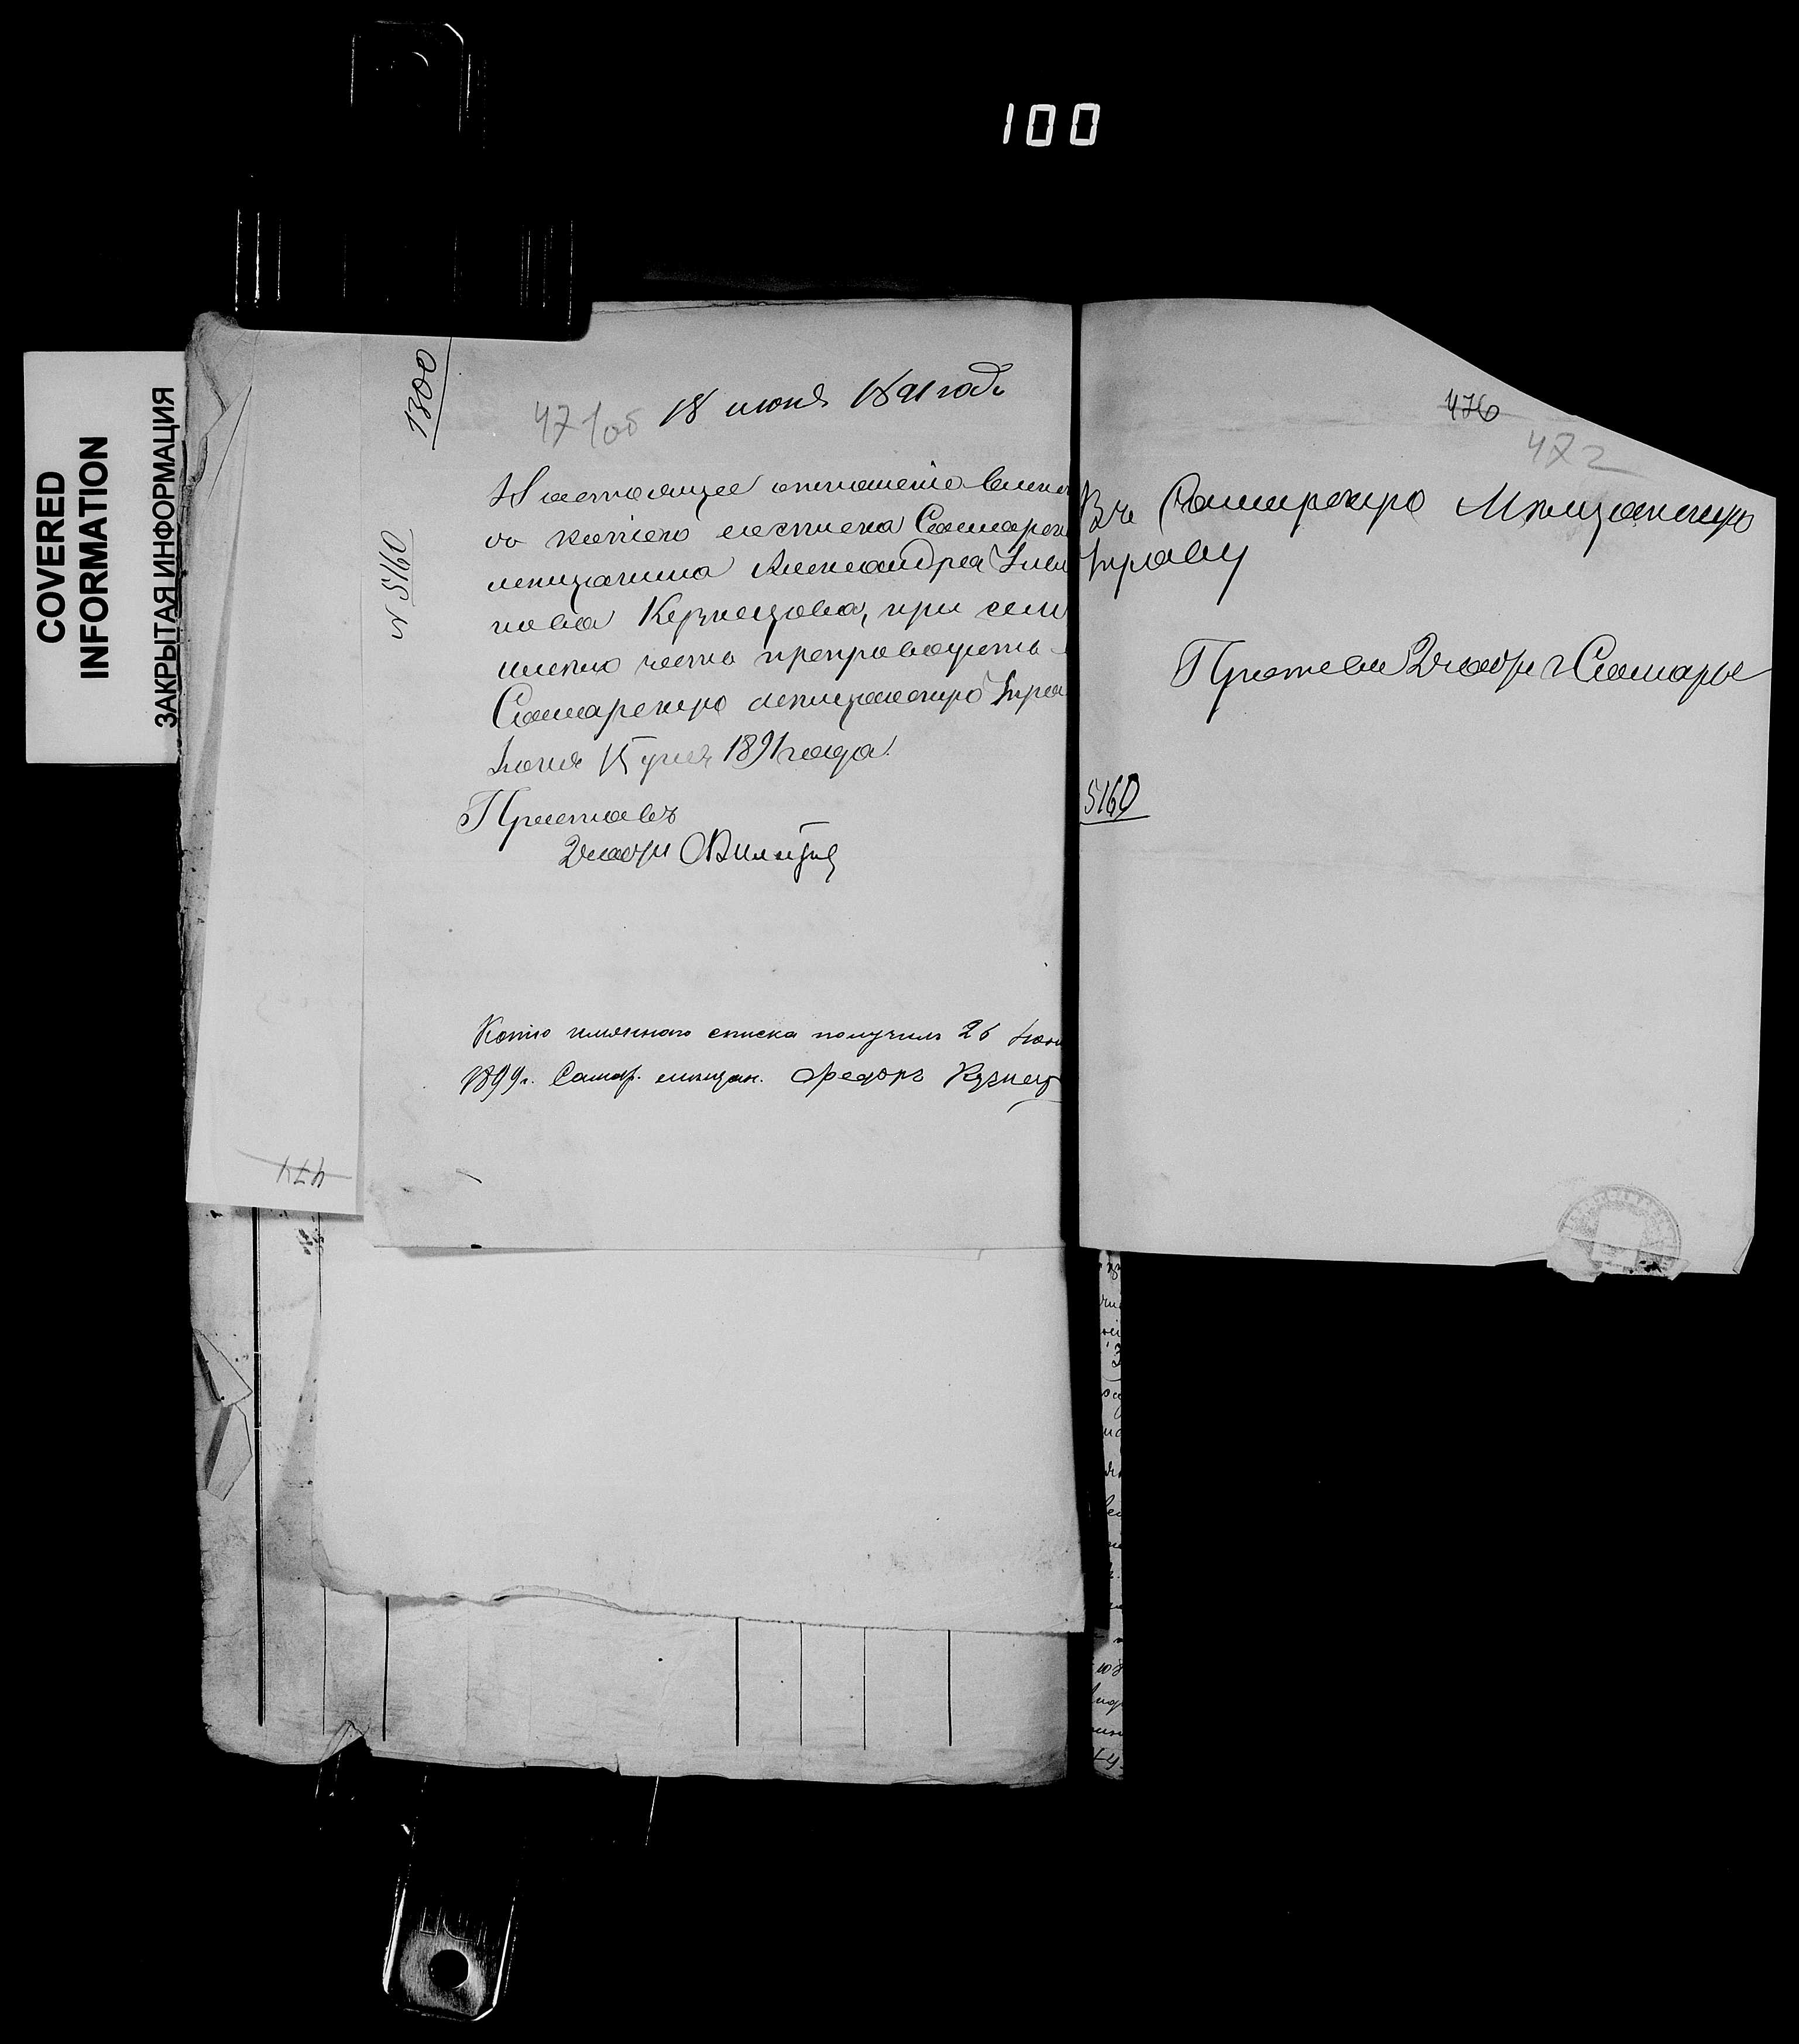 100
COVERED
INFORMATION
ЗАКРЫТАЯ ИНФОРМАЦИЯ
1300
47 об
18 июня 1891 года
№ 5160
Настоящее отношеніе вмѣст
съ копіею списка Самарск
мѣщанина Александра
нова Кузнецова, при семъ
имѣю честь препроводить
Самарскую мѣщанскую Упра
Іюня 15 дня 1891 года.
Приставъ
Копію имяннаго списка получилъ 26 Іюня
1899 г. Самар. мѣщан. Федоръ Кузнец
474
476
472
Въ Самарскую Мѣщанскую
Управу
Пристава 2 части г. Самары
5160